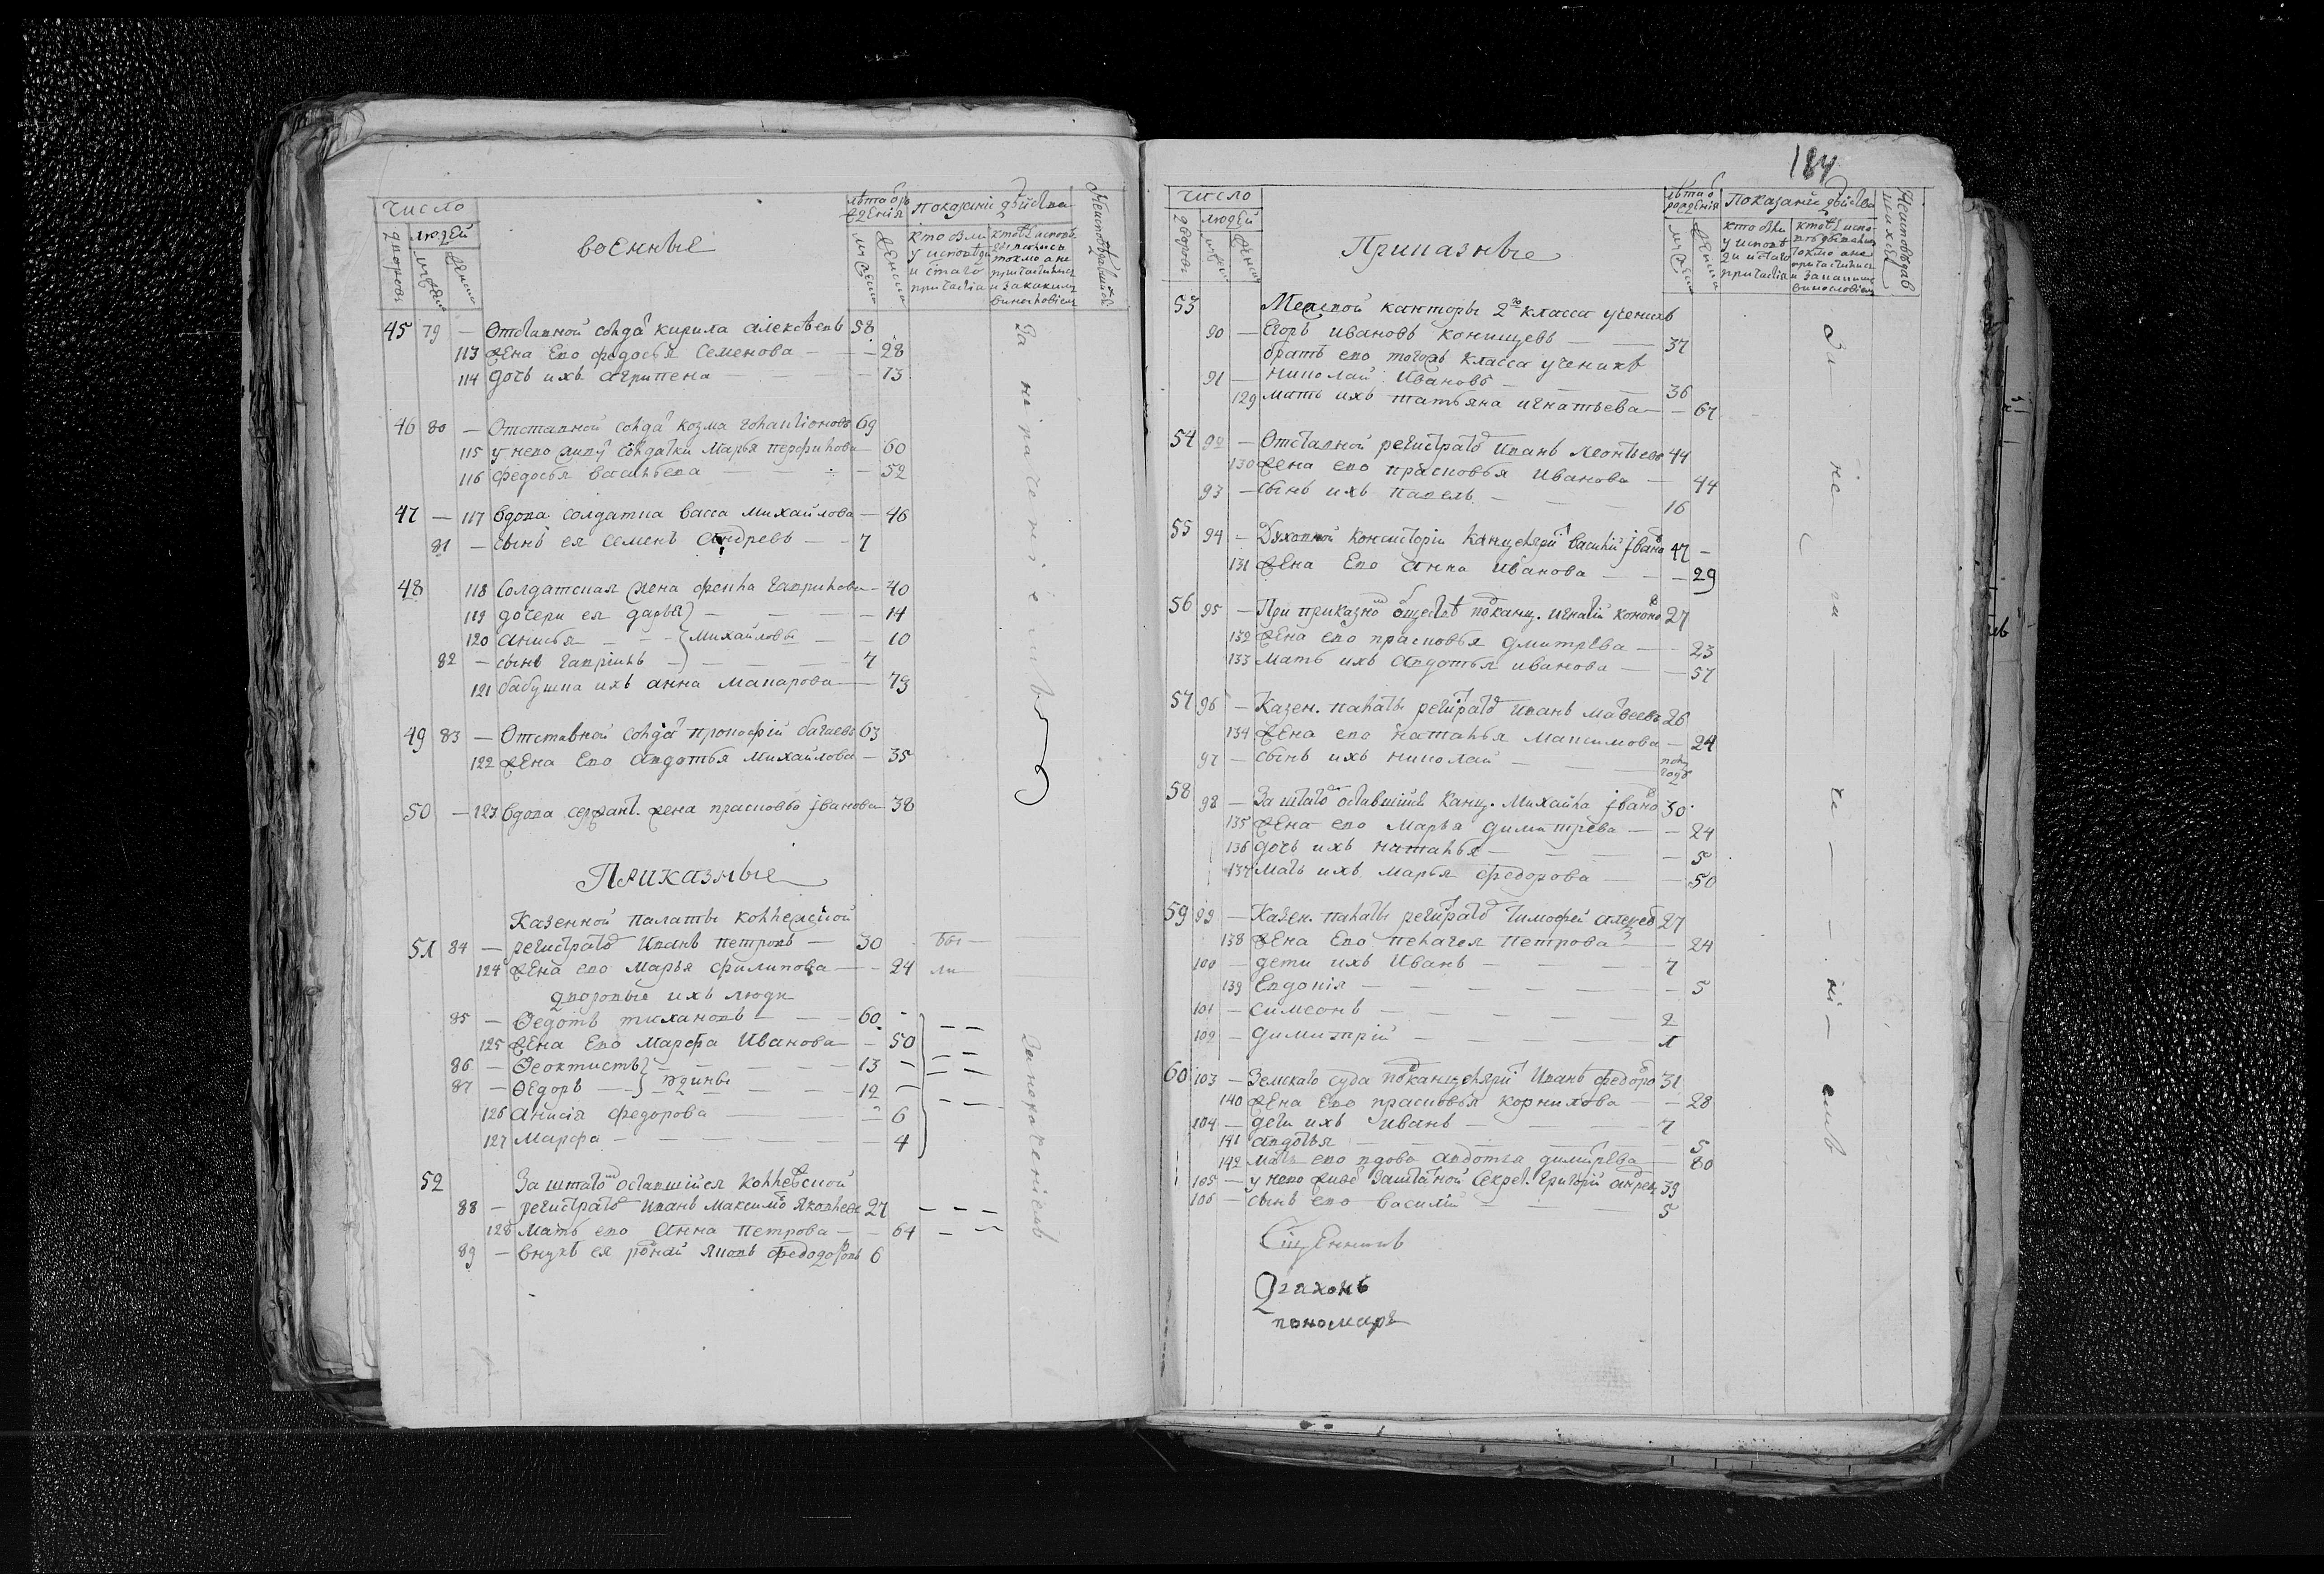 число
дворовъ
людей
мужеска
женска
военные
лѣта отъ рожденія
мужеска
женска
показаніе дѣйства
кто были у исповѣди и стаго причастія
кто исповѣдывались токмо а не причастились и за какимъ винословіемъ
неисповѣдавшихся
45 79 — Отставной солдат кирила алексѣевъ 58
113 жена Ево федосья Семенова — — 28
114 дочь ихъ агрипена — — 13
46 80 — Отставной солдат козма 69
115 у нево живут солдатки Марья перфилова — 60
116 федосья васильева — 52
47 — 117 вдова солдатка васса михайлова — 46
81 — сынъ ея семенъ андреевъ — — 7
48 118 Солдатская жена фекла гаврилова — 40
119 дочери ея дарья — — 14
120 анисья — — михайловы — — 10
82 — сынъ гавріилъ — — 7
121 бабушка ихъ анна макарова — 73
49 83 — Отставной солдат прокофій багаевъ 63
122 жена Ево авдотья михайлова — 35
50 — 123 вдова сержант. жена прасковья іванова — 38
за нерачениемъ
Приказные
Казенной палаты коллежской
51 84 — регистратор Иванъ петровъ — 30 бы —
124 жена ево марья филипова — — 24 ли —
дворовые ихъ люди
85 — Ѳедотъ тихановъ — — 60
125 жена Ево Марфа Иванова — 50
86 — Ѳеоктистъ — 13
87 — Ѳедоръ — — вдинъ — 12
126 анисія федорова — 6
127 Марфа — — — — 4
52 За штатом оставшийся коллежской
88 — регистратор Иванъ Максимов Яковлевъ 27 — — —
128 мать ево Анна петрова — — 64 — —
89 — внукъ ея родной яковъ федодоровъ 6
за нерачениемъ
184
число
дворовъ
людей
мужеска
женска
Приказные
лѣта от рожденія
мужеска
женска
показаніе дѣйства
кто были у исповѣди и стаго причастія
кто исповѣдывались токмо а не причастились и за какимъ винословіемъ
неисповѣдавшихся
53 Межевой канторы 2го класса ученикъ
90 — Егоръ ивановъ конищевъ — 37
братъ ево тогожъ класса ученикъ
91 — николай ивановъ — — 36
129 мать ихъ татьяна игнатьева — — 67
54 92 — Отставной регистратор иванъ леонтьевъ 44
130 жена ево прасковья иванова — 44
93 — сынъ ихъ павелъ — — 16
55 94 — Духовной консисторіи канцелярист василій івановъ 47 —
131 жена Ево анна иванова — — — 29
56 95 — При приказном общест. подканц. игнатій кононовъ 27
132 жена ево прасковья дмитрѣва — — 23
133 мать ихъ авдотья иванова — — 57
57 96 — Казен. палаты регистратор иванъ матвеевъ 26
134 жена ево наталья максимова — 24
97 — сынъ ихъ николай — — полугодъ
58 98 — За штатом оставшийся канц. Михайла івановъ 30
135 жена ево марья димитрева — — 24
136 дочь ихъ наталья — — 5
137 мать ихъ марья федорова — — 50
59 99 — Казен. палаты регистратор тимофей алексеевъ 27
138 жена Ево пелагея петрова — 24
100 — дети ихъ иванъ — — 7
139 Евдокія — — — 5
101 — симеонъ — — — 2
102 — димитрій — — 1
60 103 — Земскаго суда подканцелярист иванъ федоровъ 31
140 жена Ево прасковья корнилова — — 28
104 — дети ихъ иванъ — — 7
141 авдотья — — 5
142 мать ево вдова авдотья димитрева — 80
105 — у нево живет заштатной секрет. григорій андреевъ 39
106 — сынъ ево василій — — 5
за нерачениемъ
Сщенникъ
Діаконъ
пономарь